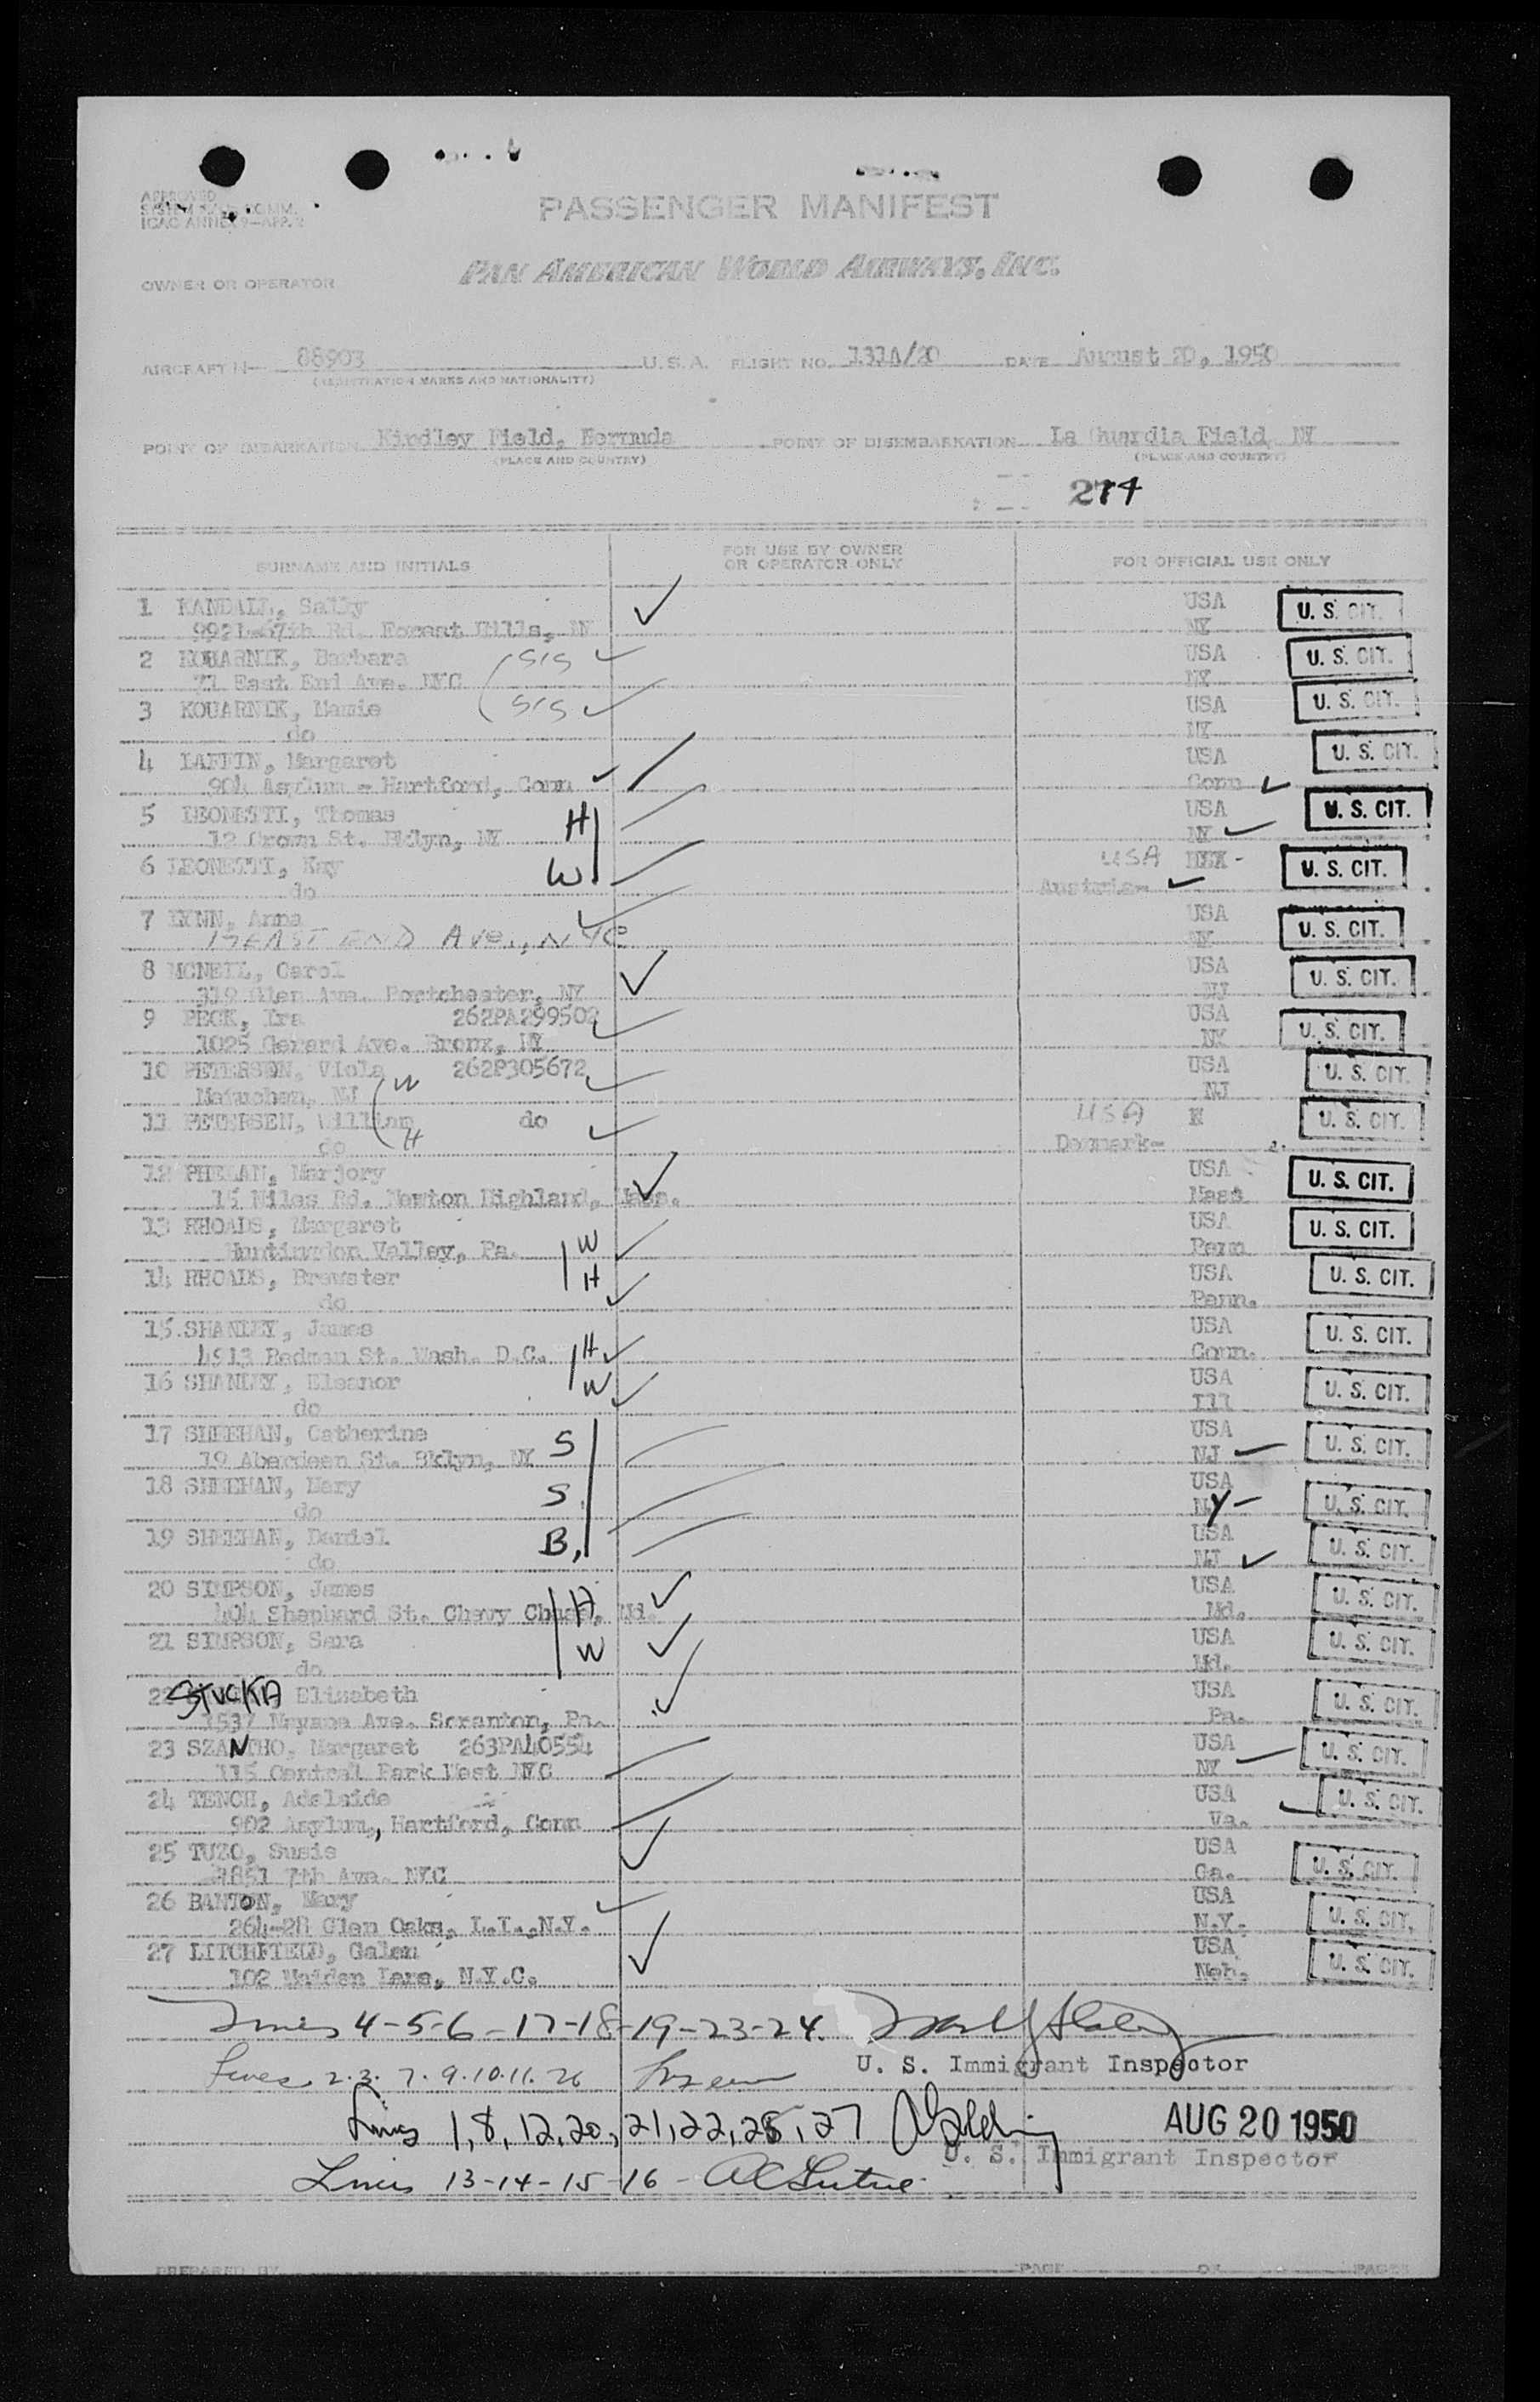 APPROVED
PASSENGER MANIFEST
OWNER OR OPERATOR
PAN AMERICAN WORLD AIRWAYS, INC.
AIRCRAFT N- 88903 U.S.A. FLIGHT NO. 131A/20 DATE August 20, 1950
(REGISTRATION MARKS AND NATIONALITY)
POINT OF EMBARKATION Kindley Field, Bermuda POINT OF DISEMBARKATION La Guardia Field, NY
(PLACE AND COUNTRY) (PLACE AND COUNTRY)
274
SURNAME AND INITIALS FOR USE BY OWNER OR OPERATOR ONLY FOR OFFICIAL USE ONLY
1 KANDALL, Sally USA U. S. CIT.
9921-67th Rd. Forest Hills, NY NY
2 KOUARNIK, Barbara SIS USA U. S. CIT.
71 East End Ave. NYC NY
3 KOUARNIK, Mamie SIS USA U. S. CIT.
do NY
4 LAFFIN, Margaret USA U. S. CIT.
904 Asylum - Hartford, Conn Conn
5 LEONETTI, Thomas H USA U. S. CIT.
12 Crown St. Bklyn, NY NY
6 LEONETTI, Kay W USA U. S. CIT.
do Austria-
7 LYNN, Anna USA U. S. CIT.
EAST END Ave., NYC NY
8 MCNEIL, Carol USA U. S. CIT.
319 Glen Ave. Portchester, NY NJ
9 PECK, Ira 262PA299502 USA U. S. CIT.
1025 Gerard Ave. Bronx, NY NY
10 PETERSEN, Viola W 262P305672 USA U. S. CIT.
Metuchen, NJ NJ
11 PETERSEN, William H do USA U. S. CIT.
do Denmark-
12 PHELAN, Marjory USA U. S. CIT.
15 Niles Rd. Newton Highland, Mass. Mass
13 RHOADS, Margaret W USA U. S. CIT.
Huntingdon Valley, Pa. Penn
14 RHOADS, Brewster H USA U. S. CIT.
do Penn.
15. SHANLEY, James H USA U. S. CIT.
4913 Redman St. Wash. D.C. Conn.
16 SHANLEY, Eleanor W USA U. S. CIT.
do Ill
17 SHEEHAN, Catherine S USA U. S. CIT.
19 Aberdeen St. Bklyn, NY NJ
18 SHEEHAN, Mary S USA U. S. CIT.
do NY
19 SHEEHAN, Daniel B, USA U. S. CIT.
do NJ
20 SIMPSON, James H USA U. S. CIT.
404 Shephard St. Chevy Chase, Md. Md.
21 SIMPSON, Sara W USA U. S. CIT.
do Md.
22 STUCKA Elizabeth USA U. S. CIT.
1537 Ave. Scranton, Pa. Pa.
23 SZANTHO, Margaret 263PA40554 USA U. S. CIT.
115 Central Park West NYC NY
24 TENCH, Adelaide USA U. S. CIT.
902 Asylum, Hartford, Conn Va.
25 TUZO, Susie USA U. S. CIT.
1851 7th Ave. NYC Ga.
26 BANTON, Mary USA U. S. CIT.
264-28 Glen Oaks, L.I.,N.Y. N.Y.
27 LITCHFIELD, Galen USA U. S. CIT.
102 Maiden Lane, N.Y.C. Neb.
Lines 4-5-6-17-18-19-23-24.
U. S. Immigrant Inspector
Lines 2.3.7.9.10.11.26
Lines 1,8,12,20,21,22,25,27
AUG 20 1950
U. S. Immigrant Inspector
Lines 13-14-15-16 -
PREPARED BY PAGE OF PAGES